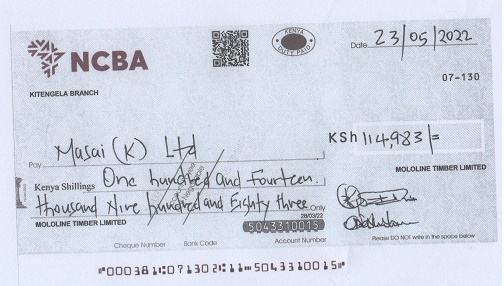 NCBA
KENYA
DUTY PAID
Date 23/05/2022
07-130
KITENGELA BRANCH
Pay Masai (K) Ltd
KSh 114,983/=
Kenya Shillings One hundred and Fourteen
thousand Nine hundred and Eighty three Only
MOLOLINE TIMBER LIMITED
MOLOLINE TIMBER LIMITED
28/03/22
5043310015
Cheque Number Bank Code Account Number
Please DO NOT write in the space below
"000381⑆07130 2⑆11⑉5043310015⑈